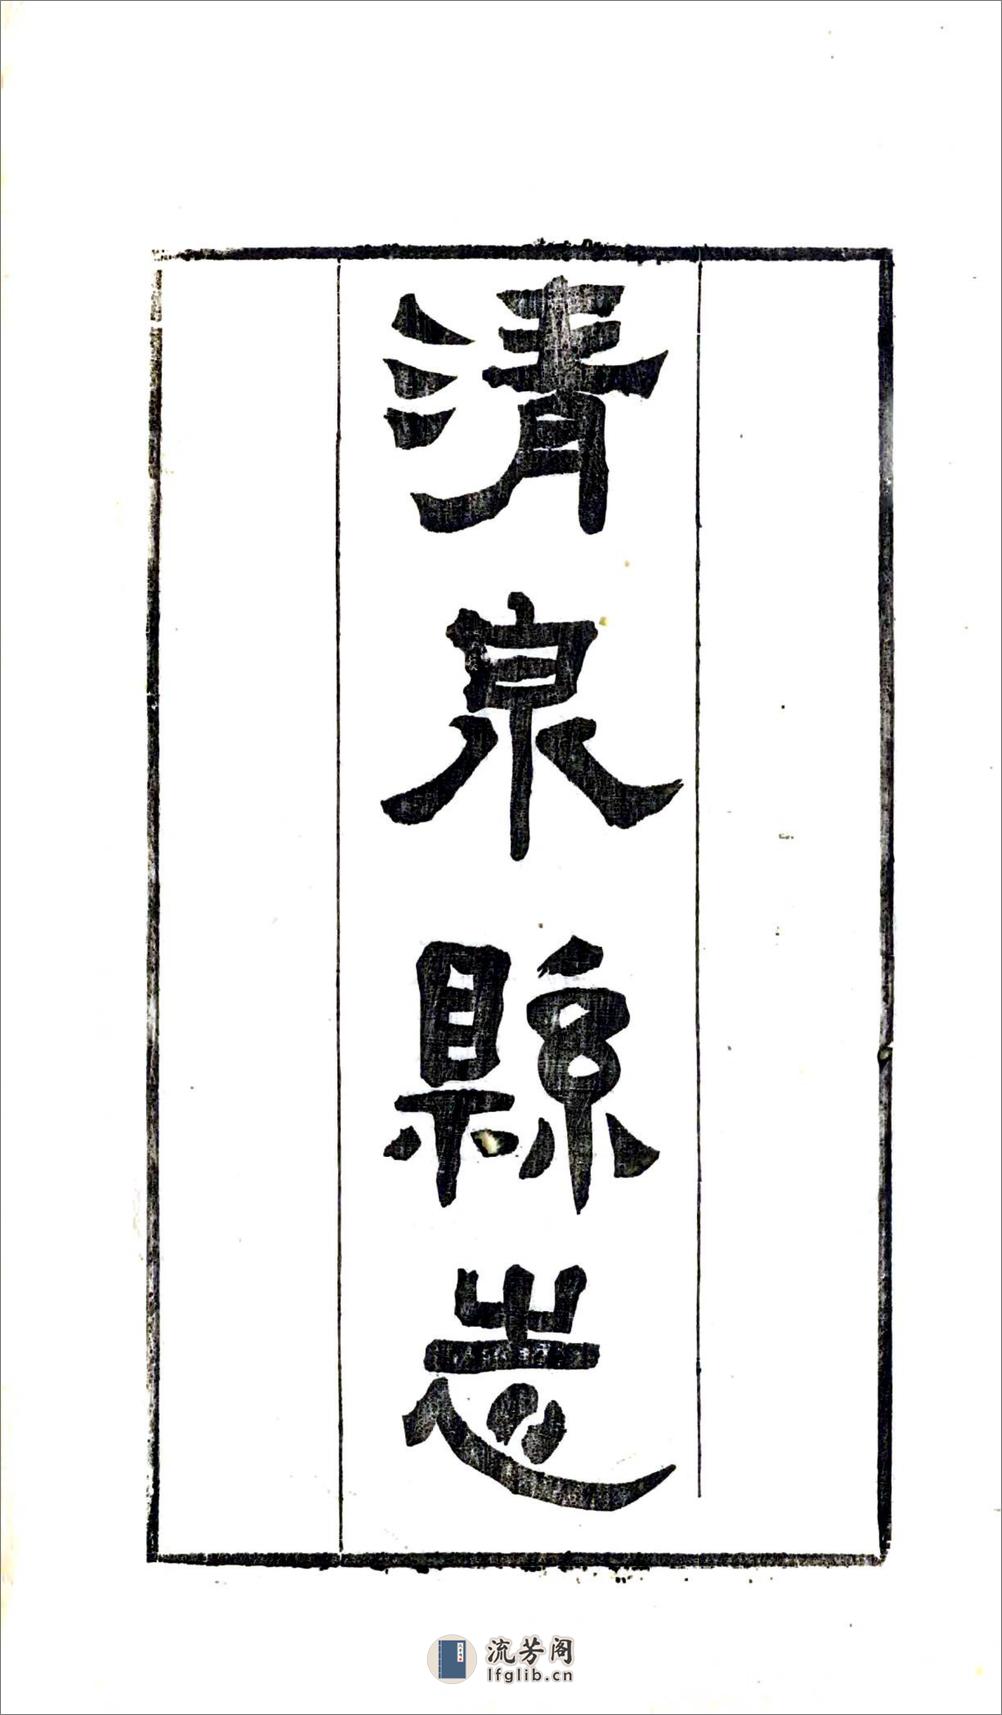 清泉縣志
流芳阁
lfglib.cn